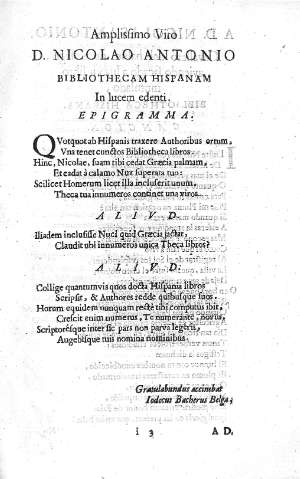 Amplissimo Viro
D. NICOLAO ANTONIO
BIBLIOTHECAM HISPANAM
In lucem edenti.
EPIGRAMMA.
QVotquot ab Hispanis traxere Authoribus ortum,
Una tenet cunctos Bibliotheca libros.
Hinc, Nicolae, suam tibi cedat Græcia palmam,
Et cadat à calamo Nux superata tuo:
Scilicet Homerum licet illa incluserit unum,
Theca tua innumeros continet una viros.
ALIVD.
Iliadem inclusisse Nuci quid Græcia jactat,
Claudit ubi innumeros unica Theca libros?
ALIVD.
Collige quantumvis quos docta Hispania libros
Scripsit, & Authores redde quibusque suos.
Horum equidem nunquam rectè tibi computus ibit,
Crescit enim numerus, Te numerante, novus,
Scriptoresque inter sic pars non parva legeris,
Augebisque tuis nomina nominibus.
Gratulabundus accinebat
Iodocus Bacherus Belga;
i 3 A D.